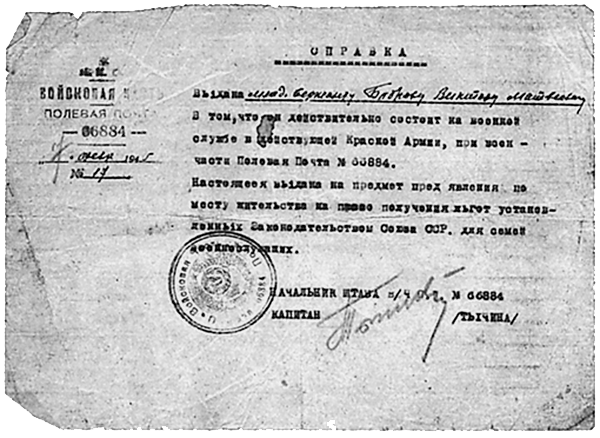 СПРАВКА
ВОЙСКОВАЯ ЧАСТЬ
ПОЛЕВАЯ ПОЧТА
— 66884 —
№ 17
Выдана млад. сержанту Боброву Виктору Матвеевичу
В том, что он действительно состоит на военной
службе в действующей Красной Армии, при воен -
части Полевая Почта № 66884.
Настоящее выдана на предмет пред явления по
месту жительства на право получения льгот установ-
ленных Законодательством Союза ССР. для семей
военнослужащих.
НАЧАЛЬНИК ШТАБА в/ч № 66884
КАПИТАН /ТЫЧИНА/